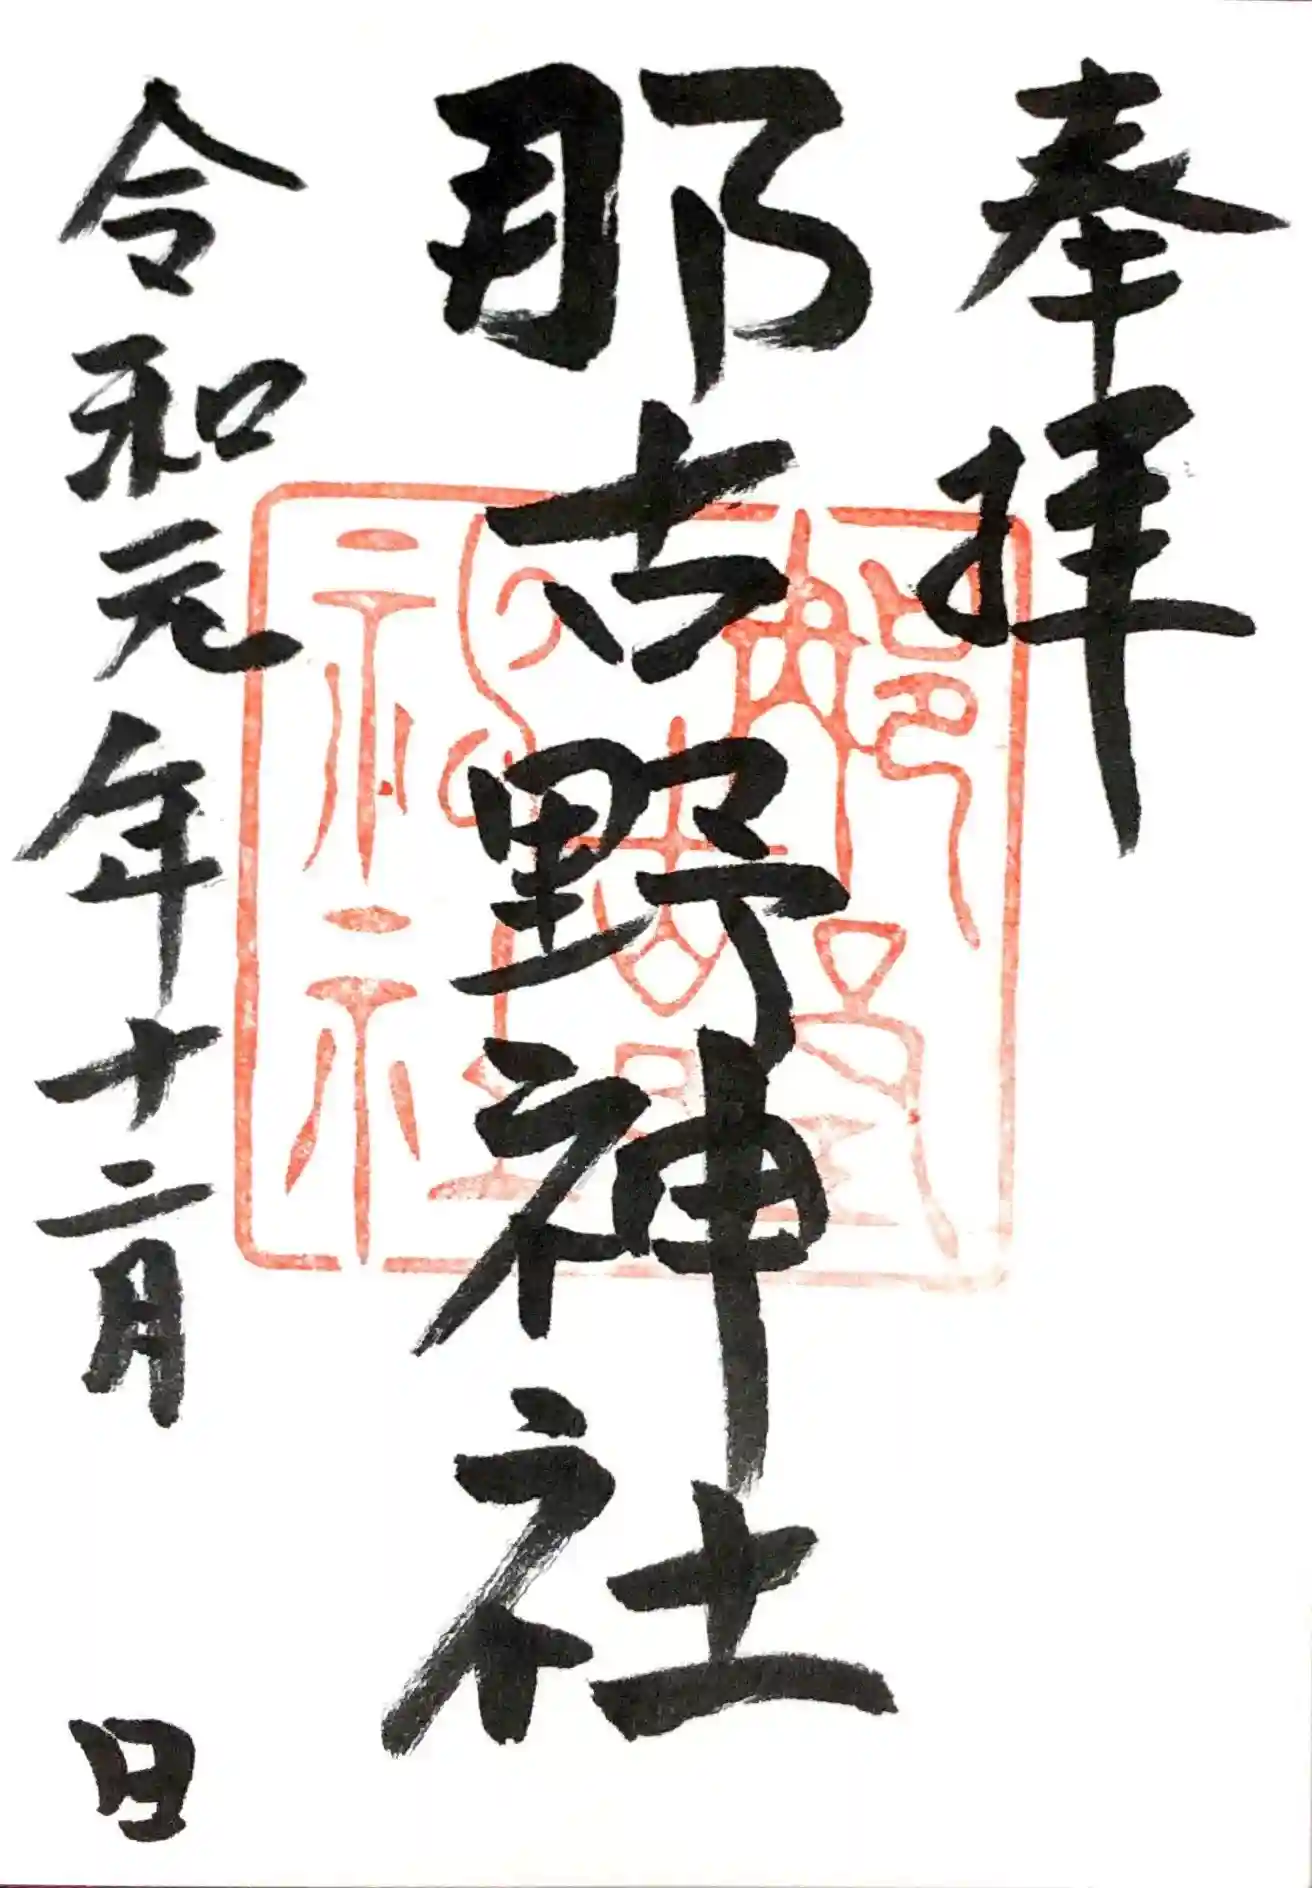 奉拝
那古野神社
令和元年十二月 日
那古野神社